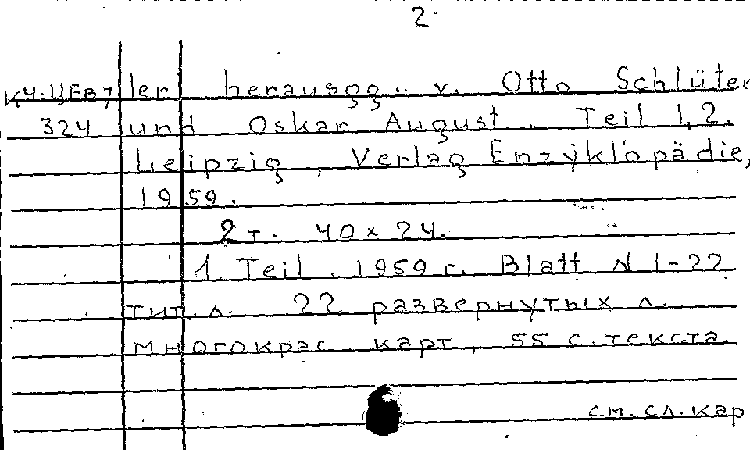 2.
К4.ЦЕв7 ler herausgg. v. Otto Schlüter
324 und Oskar August. Teil 1,2.
Leipzig, Verlag Enzyklopädie,
1959.
2 т. 40 x 24.
1. Teil. 1959 г. Blatt N 1-22
тит. л. 22 развернутых л.
многокрас. карт, 55 с. текста.
см. сл. кар